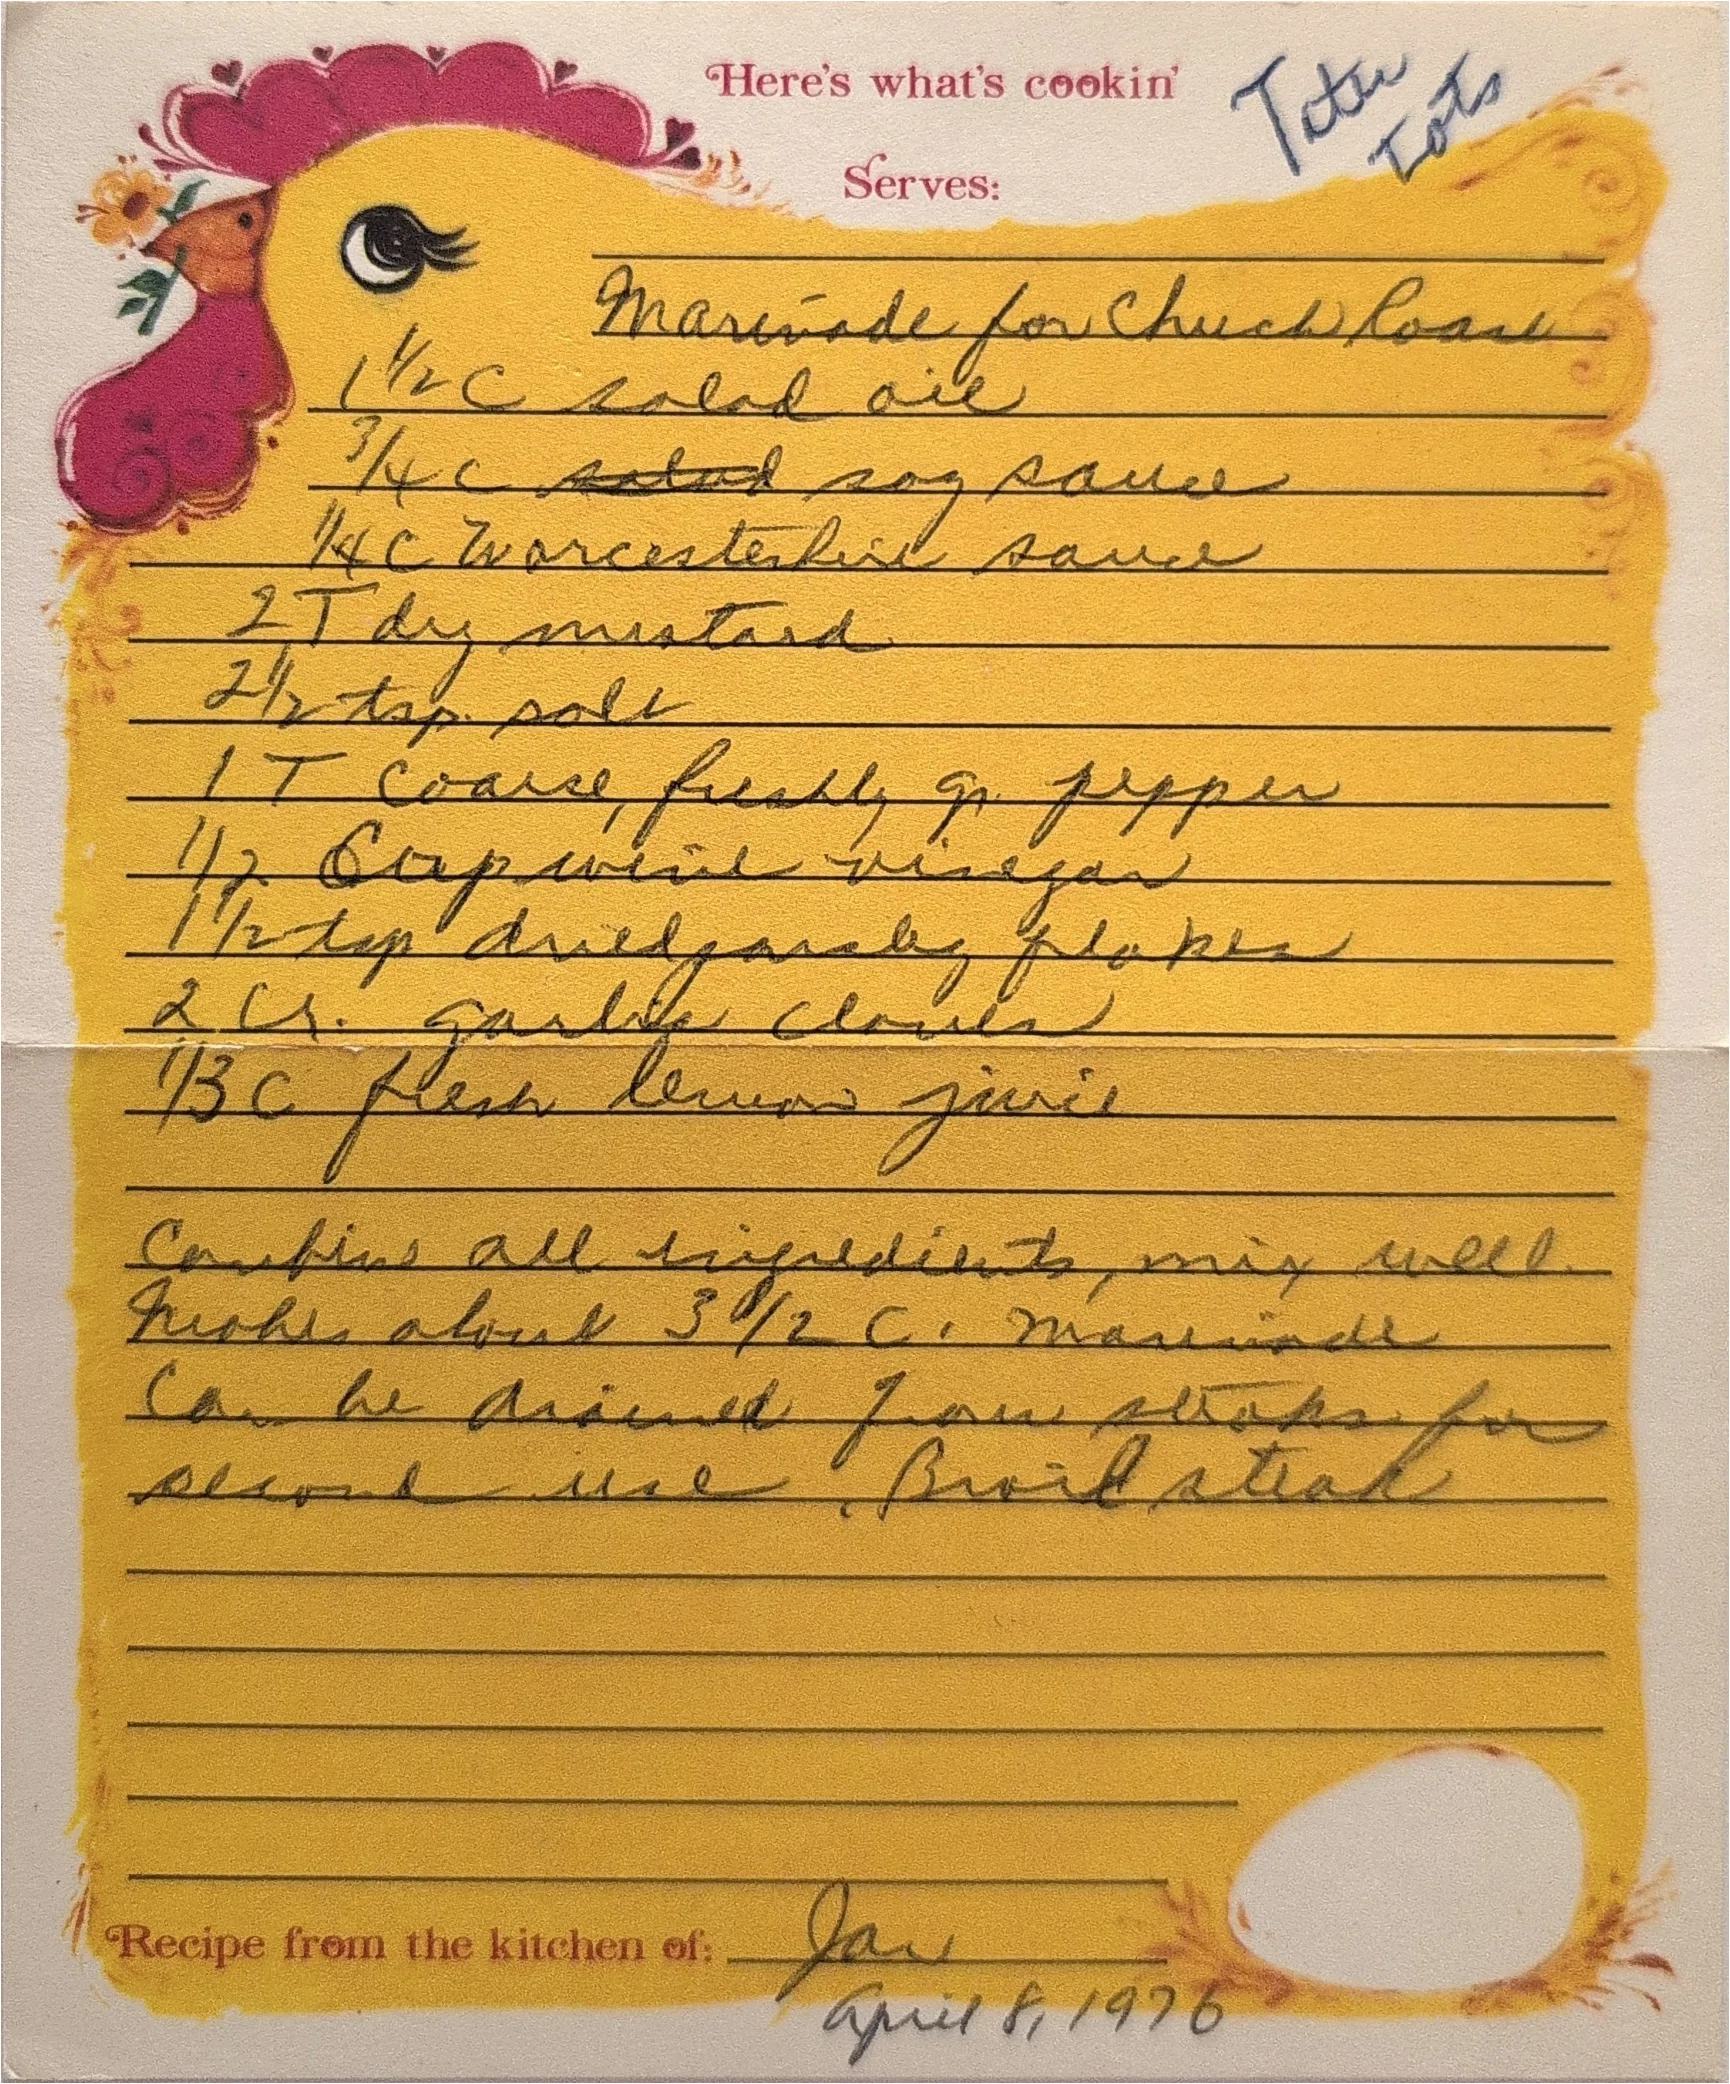 Here's what's cookin'
Tater
Tots
Serves:
Marinade for Chuck Roast
1 1/2 C salad oil
3/4 C salad soy sauce
1/4 C Worcestershire sauce
2 T dry mustard
2 1/2 tsp. salt
1 T coarse, freshly gr. pepper
1/2 Cup wine vinegar
1 1/2 tsp dried parsley flakes
2 Cr. garlic cloves
1/3 C fresh lemon juice
Combine all ingredients, mix well.
Makes about 3 1/2 C. Marinade
Can be drained from steaks for
second use. Broil steak
Recipe from the kitchen of: Jan
April 8, 1976